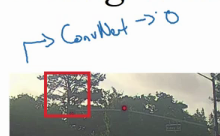 → ConvNet → 0